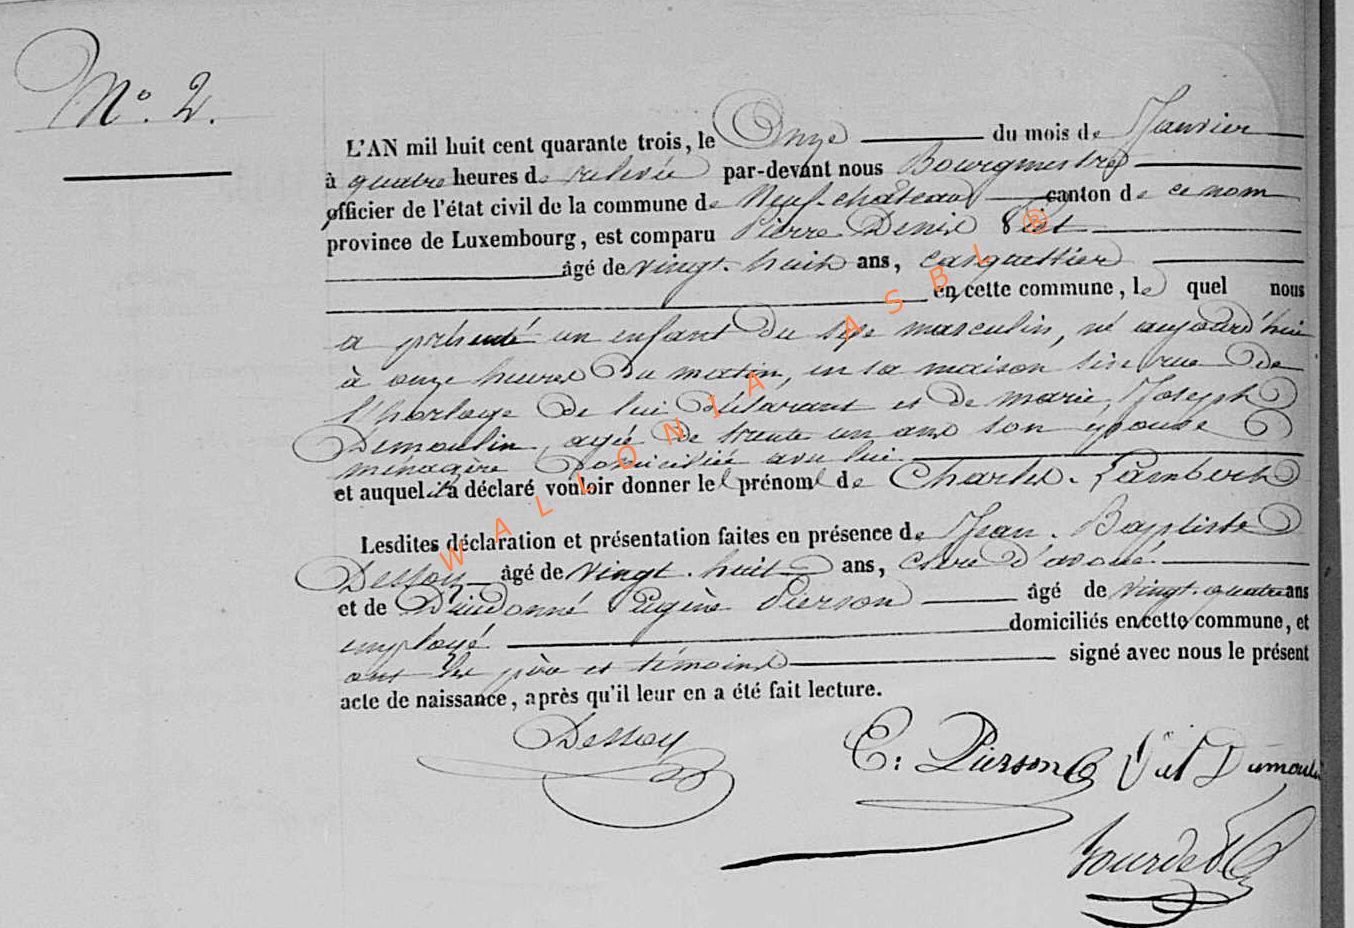 N° 2.
L'AN mil huit cent quarante trois, le Onze du mois de Janvier
à quatre heures de relevée par-devant nous Bourgmestre
officier de l'état civil de la commune de Neufchâteau canton de ce nom
province de Luxembourg, est comparu Pierre Denis
âgé de vingt-huit ans, casquettier
en cette commune, le quel nous
a présenté un enfant du sexe masculin, né aujourd'hui
à onze heures du matin, en sa maison sise rue de
l'horloge de lui déclarant et de marie Joseph
Demoulin, agée de trente un ans son épouse
ménagère domiciliée avec lui
et auquel il a déclaré vouloir donner le prénom de Charles-Lambert
Lesdites déclaration et présentation faites en présence de Jean-Baptiste
Dessoy âgé de vingt-huit ans, clerc d'avoué
et de Dieudonné Eugène Pierson âgé de vingt-quatre ans
employé domiciliés en cette commune, et
ont les père et témoins signé avec nous le présent
acte de naissance, après qu'il leur en a été fait lecture.
Dessoy E: Pierson Dumoulin
WALLONIA ASBL ®